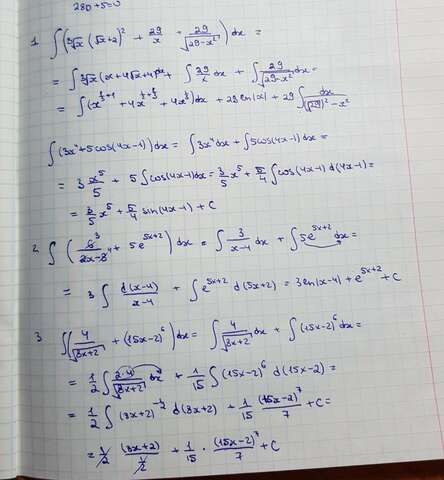 280+5=0
1 ∫(∛x (√x+2)² + 29/x + 29/√(29-x²)) dx =
= ∫ ∛x (x+4√x+4) dx + ∫ 29/x dx + ∫ 29/√(29-x²) dx =
= ∫ (x^(1/3+1) + 4x^(1/2+1/3) + 4x^(1/3)) dx + 29 ln|x| + 29 ∫ dx/√((√29)²-x²)
∫(3x⁴+5cos(4x-1)) dx = ∫3x⁴dx + ∫5cos(4x-1)dx =
= 3 x⁵/5 + 5∫cos(4x-1)dx = 3/5 x⁵ + 5/4 ∫cos(4x-1) d(4x-1) =
= 3/5 x⁵ + 5/4 sin(4x-1) + C
2 ∫ ( 6 3/2x-8 4 + 5e^(5x+2) ) dx = ∫ 3/(x-4) dx + ∫5e^(5x+2) dx =
= 3 ∫ d(x-4)/(x-4) + ∫e^(5x+2) d(5x+2) = 3 ln(x-4) + e^(5x+2) + C
3 ∫(4/√(8x+2) + (15x-2)⁶) dx = ∫ 4/√(8x+2) dx + ∫(15x-2)⁶dx =
= 1/2 ∫ 2·4/√(8x+2) dx + 1/15 ∫(15x-2)⁶ d(15x-2) =
= 1/2 ∫ (8x+2)^(-1/2) d(8x+2) + 1/15 (15x-2)⁷/7 + C =
= 1/2 (8x+2)/(1/2) + 1/15 · (15x-2)⁷/7 + C